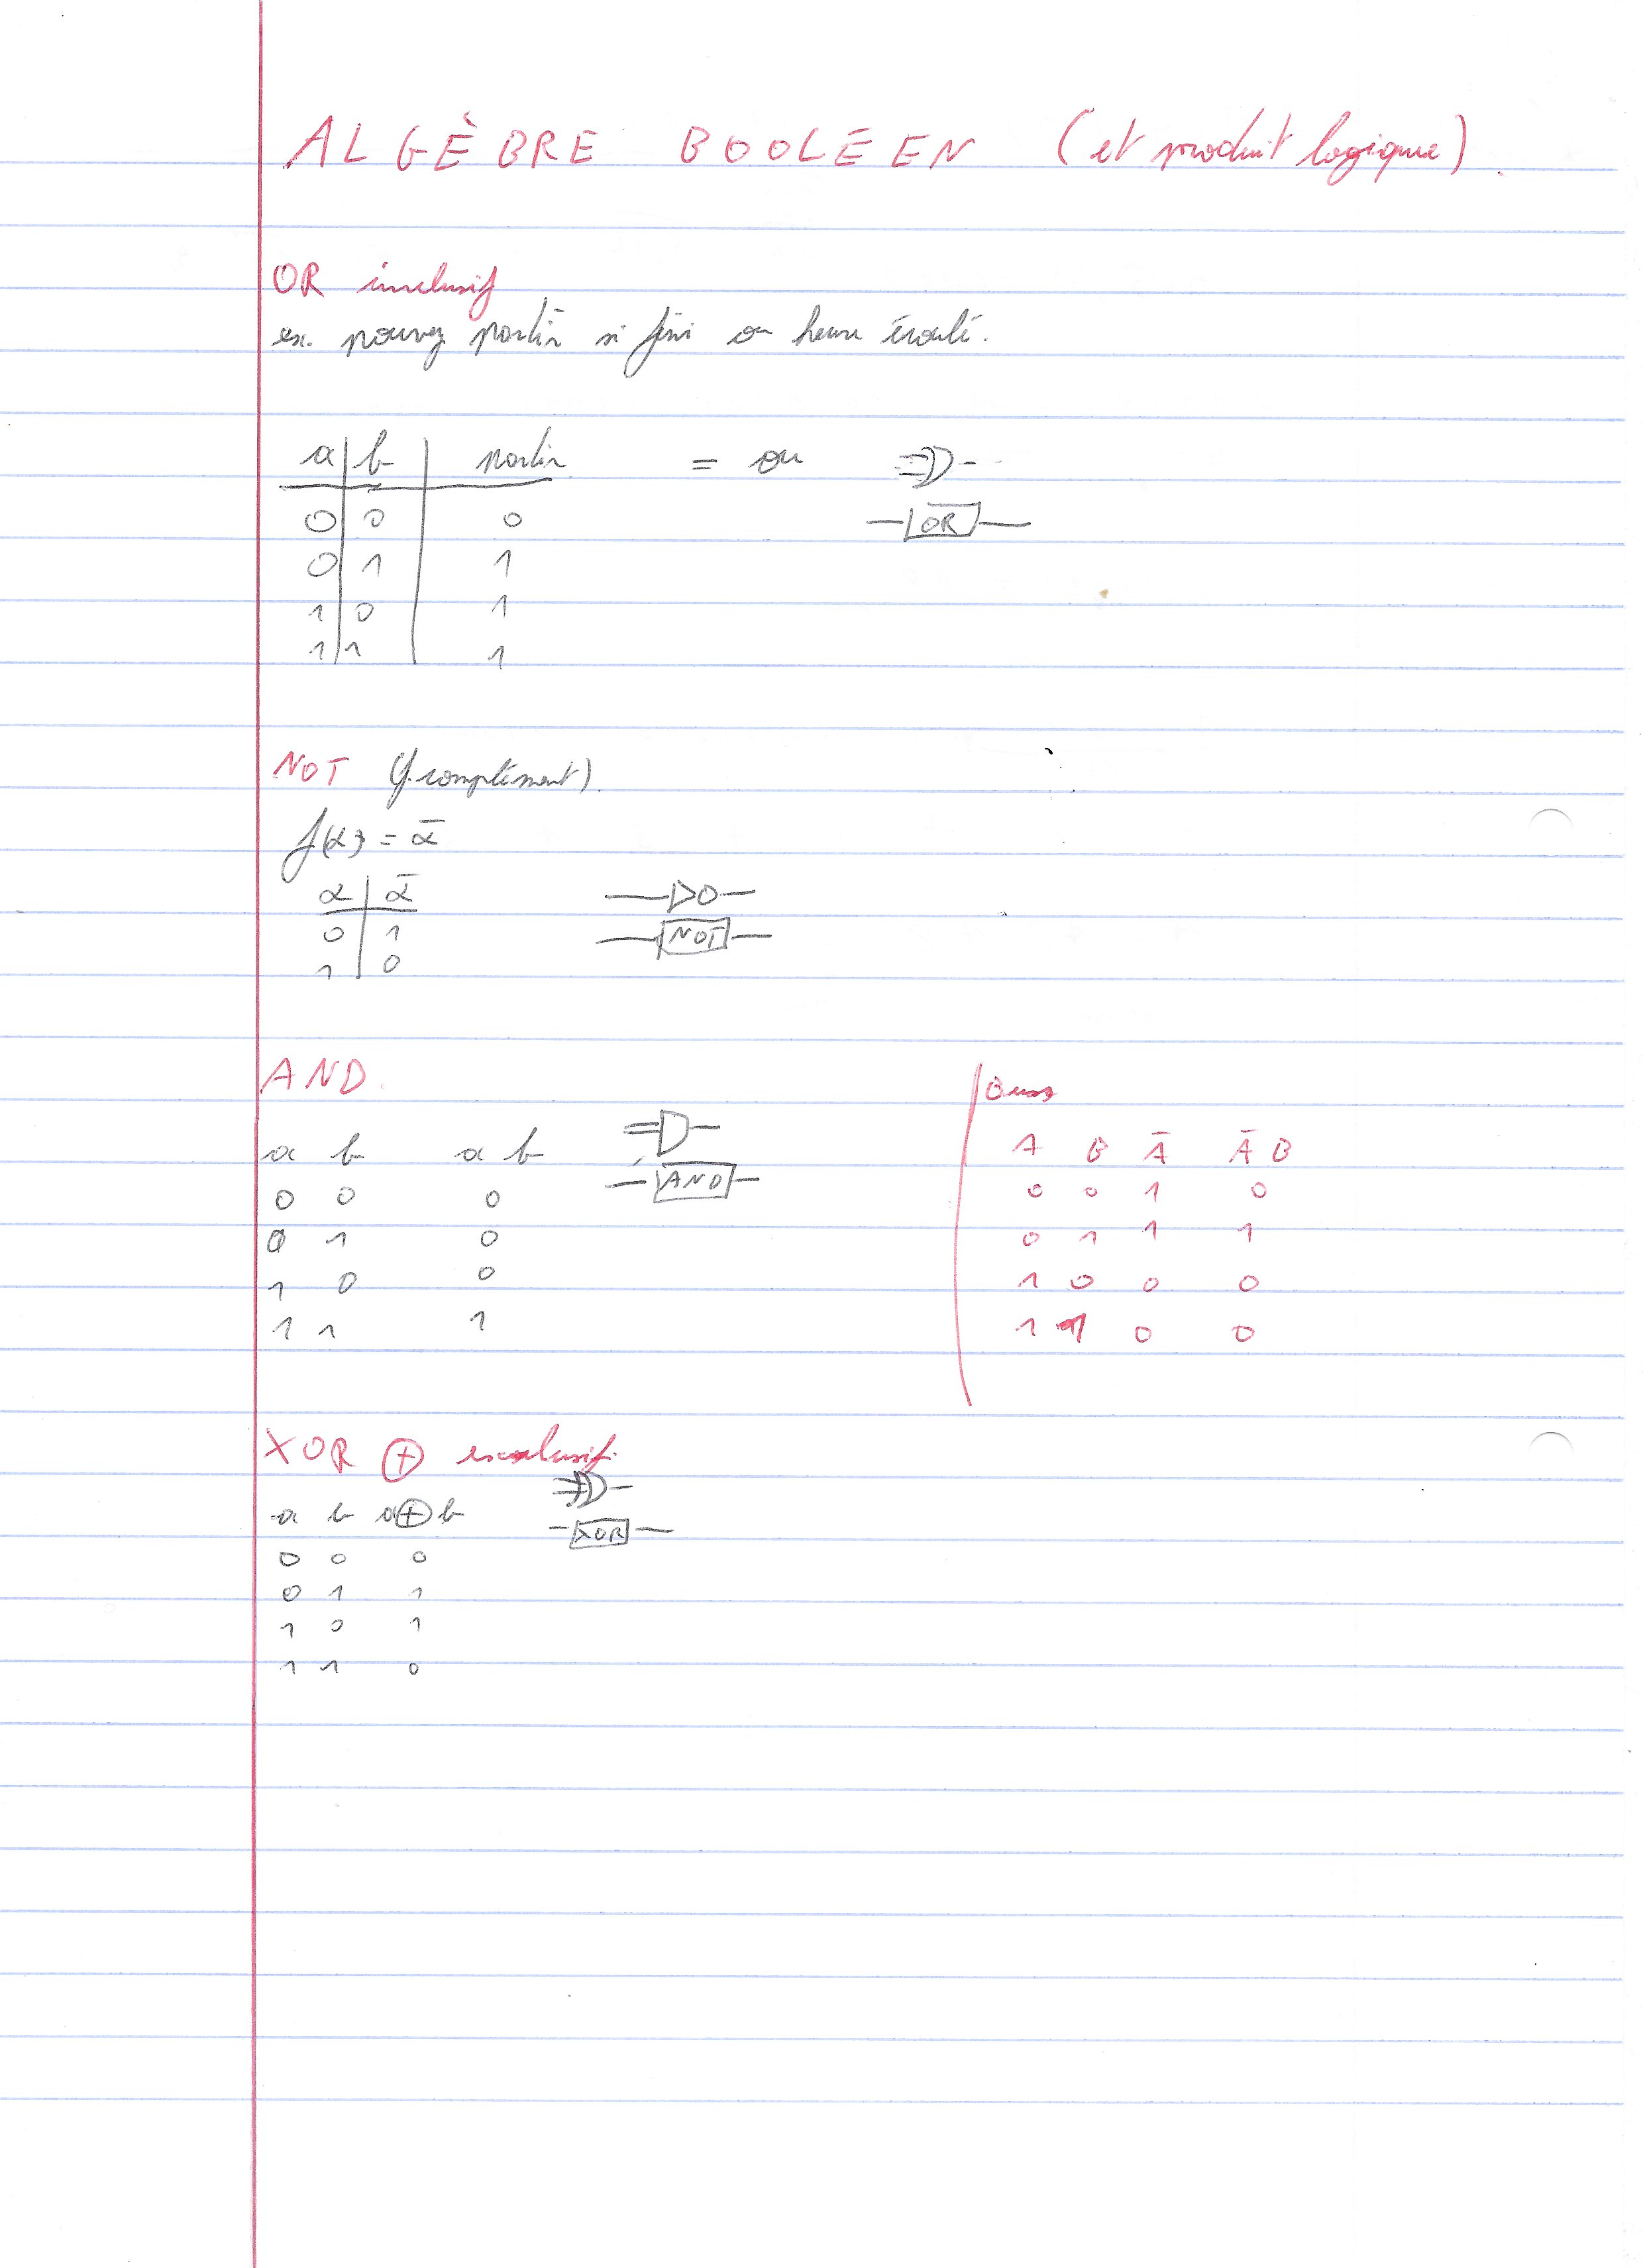 ALGÈBRE BOOLÉEN (et produit logique)
OR inclusif
ex. pouvez partir si fini ou heure écoulé.
a b partir = ou
OR
0 0 0
0 1 1
1 0 1
1 1 1
NOT (complément).
f(α) = ᾱ
α ᾱ
0 1
1 0
NOT
AND
a b a b
AND
0 0 0
0 1 0
1 0 0
1 1 1
A B Ā Ā B
0 0 1 0
0 1 1 1
1 0 0 0
1 1 0 0
XOR ⊕ exclusif.
a b a⊕b
XOR
0 0 0
0 1 1
1 0 1
1 1 0